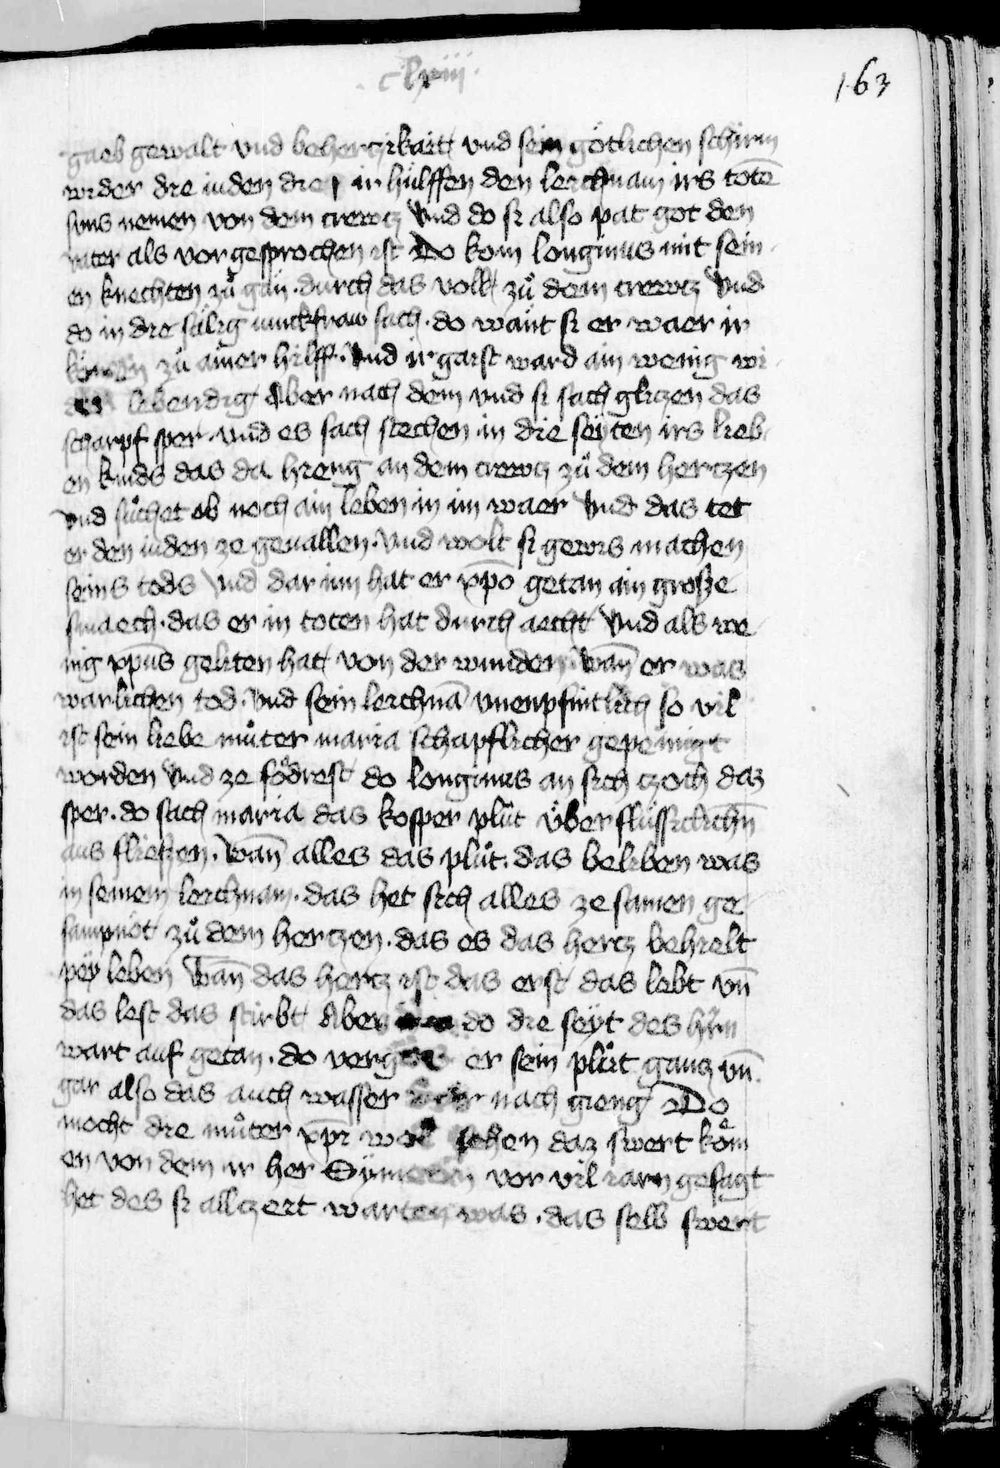 clxiii
163
gaeb gewalt vnd behertzikait vnd sein götlichen schirm
wider die iuden die ir hülffen den leichnam irs totē
suns nemen von dem crewtz Vnd do si also pat got den
vater als vor gesprochen ist Do kom longinus mit sein
en knechten zů gan · durch das volk zů dem crewtz Vnd
do in die sälig iunckfraw sach · do want si er waer ir
kömen zů ainer hilff · Vnd ir gaist ward ain wenig wi
lebendig Aber nach dem vnd si sach glitzen das
scharpf sper · vnd es sach stechen in die seyten irs lieb
en kinds das da hieng an dem crewtz zů dem hertzen
vnd sůchet ob noch ain leben in im waer Vnd das tet
er den iuden ze geuallen · vnd wolt si gewis machen
seins tods Vnd dar inn hat er xp̄o getan ain grosse
smaech · das er in toten hat durch aecht Vnd als we
nig xp̄us geliten hat von der wunden wan̄ er was
warlichen tod · Vnd sein leichnā vnenpfintlich so vil
ist sein liebe můter maria schapflicher gepeinigt
worden Vnd ze södrest do longinus an sich czoch daz
sper · do sach maria das kosper plůt überflüssiclichn̄
aus fliessen · Wan̄ alles das plůt · das beliben was
in seinem leichnam · das het sich alles ze samen ge
sampnöt zů dem hertzen · das es das hertz behielt
pey leben Wan̄ das hertz ist das erst das lebt vn̄
das lest das stirbt Aber do die seyt des hr̄n
wart auf getan · do vergos er sein plůt gantz vn̄
gar also das auch wasser nach gieng Do
mocht die můter xp̄i wol sehen daz swert köm
en von dem ir her Symeon vor vil iarn gesagt
het des si allczeit warten was · das selb swert